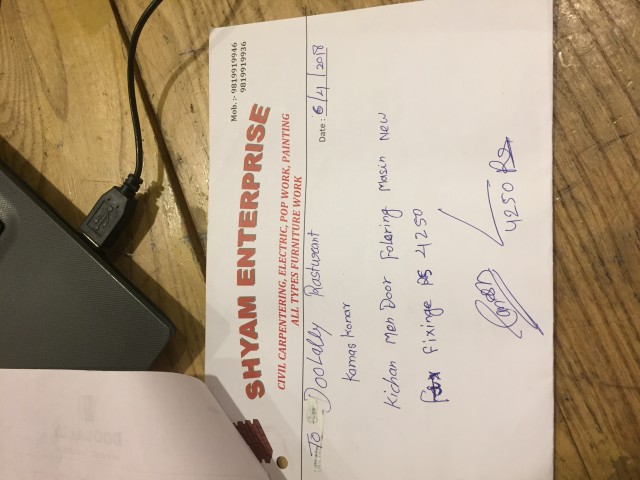 Mob.:- 9819919946
9819919936
SHYAM ENTERPRISE
CIVIL CARPENTERING, ELECTRIC, POP WORK, PAINTING
ALL TYPES FURNITURE WORK
Date: 6/4/2018
TO DooLally Rasturant
Kamas Konar
Kichan Men Door Folaring Masin New
Fixinge RS 4250
4250 Rs
DOOLALLY